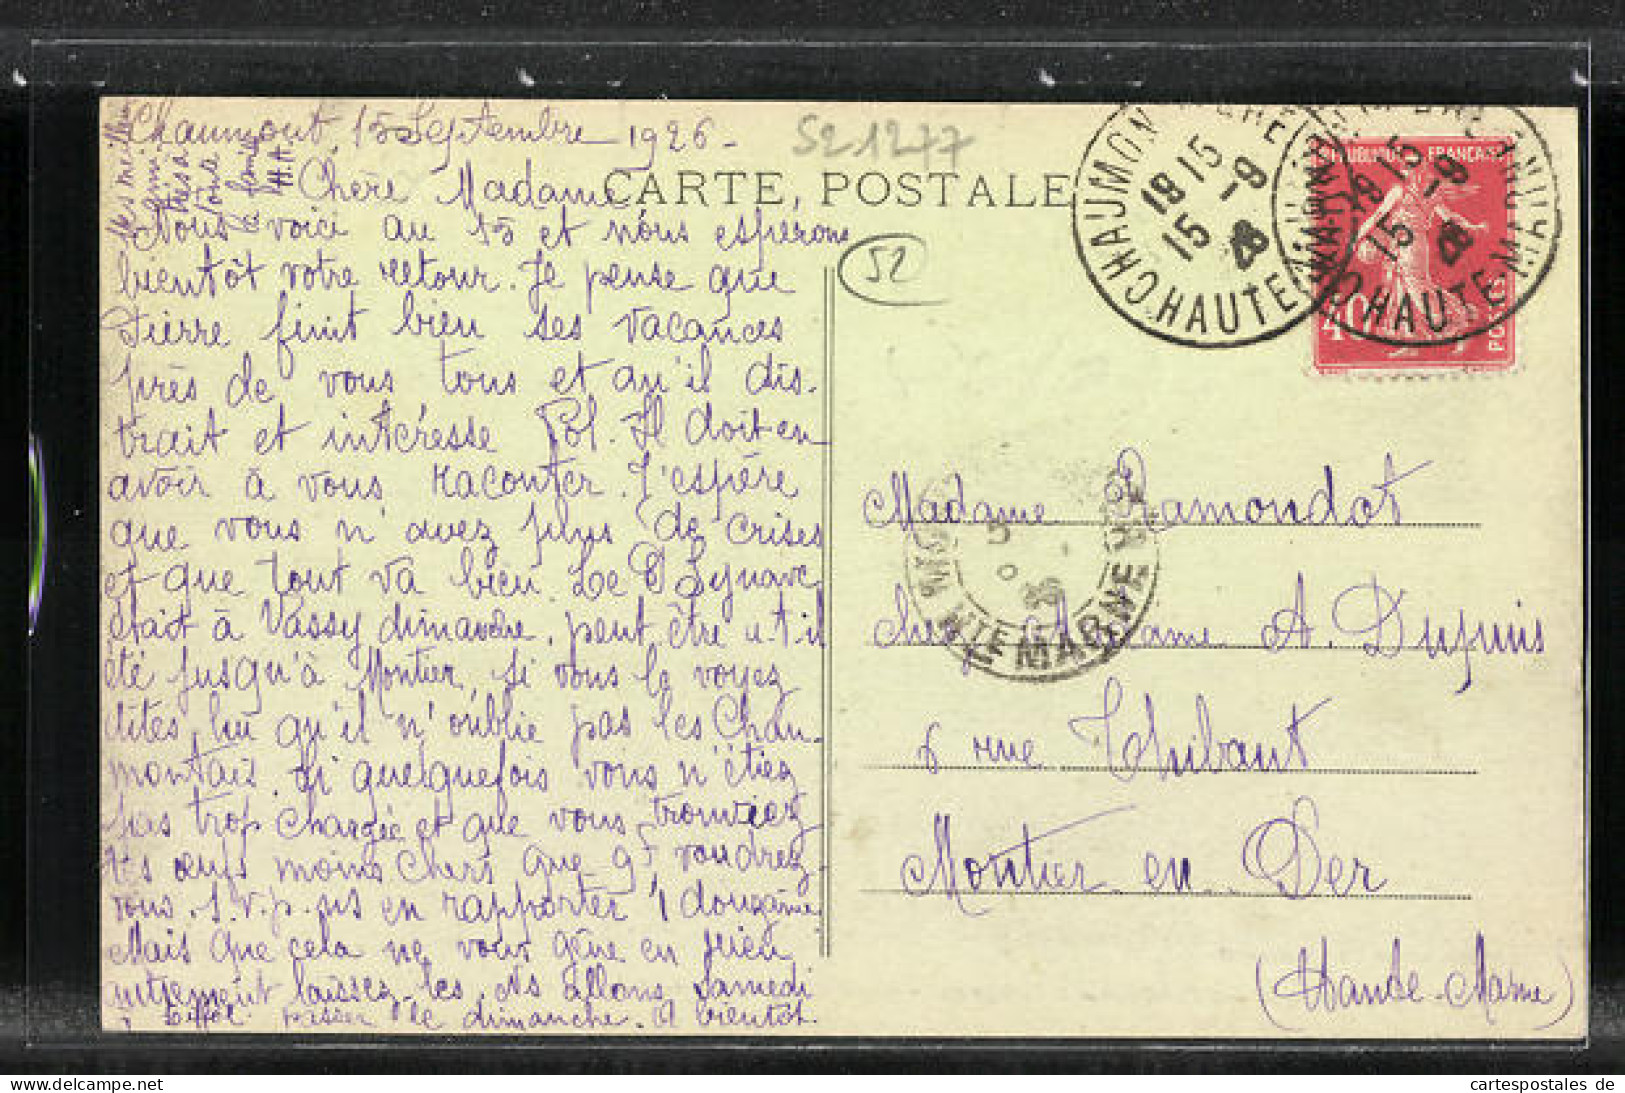 Chaumont, 15 Septembre 1926.
521277
CARTE POSTALE
Chère Madame
Nous voici au 15 et nous espérons
bientôt votre retour. Je pense que
Pierre finit bien ses vacances
près de vous tous et qu'il dis-
trait et intéresse Pol. Il doit en
avoir à vous raconter. J'espère
que vous n'avez plus de crises
et que tout va bien. Le
était à Vassy dimanche, peut être a t-il
été jusqu'à Montier, si vous le voyez
dites lui qu'il n'oublie pas les Chau-
montais. Si quelquefois vous n'étiez
pas trop chargée et que vous trouviez
des œufs moins chers que 9f voudrez
vous. s.v.p. ns en rapporter 1 douzaine
Mais que cela ne vous gêne en rien
autrement laissez-les. Ns allons samedi
à passer le dimanche. A bientôt.
Nos meilleurs
toute
la famille
H.A.
52
CHAUMONT
18 15
15 -9
26
HAUTE-MARNE
18 15
15 -9
26
HAUTE-M
REPUBLIQUE FRANÇAISE
40
POSTES
HTE MARNE
Madame Ramondot
chez Madame A. Dupuis
6 rue Thibaut
Montier en Der
(Haute-Marne)
cartespostales de
https://www.cartespostales.de